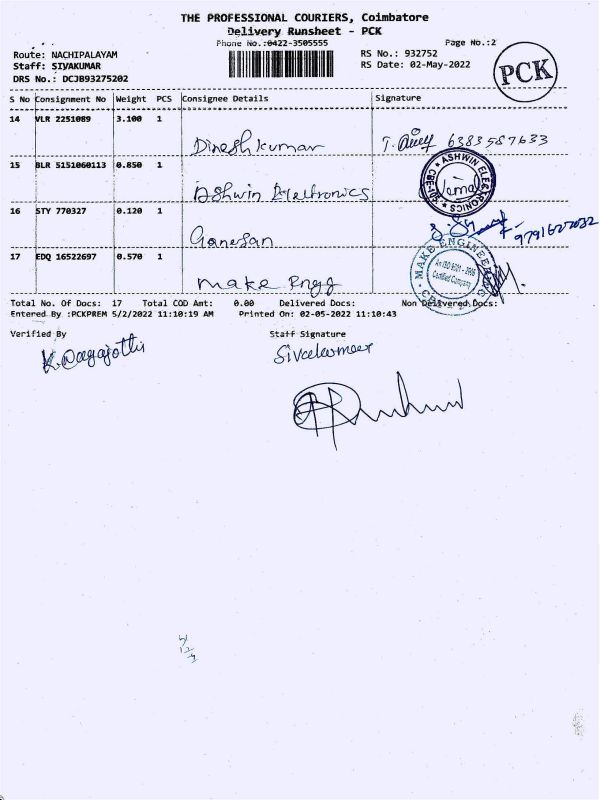 THE PROFESSIONAL COURIERS, Coimbatore
Delivery Runsheet - PCK
Phone No.:0422-3505555
Page No.:2
Route: NACHIPALAYAM
RS No.: 932752
Staff: SIVAKUMAR
RS Date: 02-May-2022
DRS No.: DCJB93275202
PCK
S No Consignment No Weight PCS Consignee Details Signature
14 VLR 2251089 3.100 1
Dineshkumar 6383587633
15 BLR 5151060113 0.850 1
Ashwin Electronics
ASHWIN ELECTRONICS
16 STY 770327 0.120 1
Ganesan
17 EDQ 16522697 0.570 1
Make Engg
MAKE ENGINEERING
An ISO 9001 -
Certified Company
Total No. Of Docs: 17 Total COD Amt: 0.00 Delivered Docs: Non Delivered Docs:
Entered By :PCKPREM 5/2/2022 11:10:19 AM Printed On: 02-05-2022 11:10:43
Verified By Staff Signature
Sivakumar